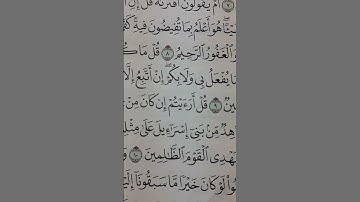 ٧ أَمْ يَقُولُونَ ٱفْتَرَىٰهُ قُلْ إِنِ
يْـًٔا هُوَ أَعْلَمُ بِمَا تُفِيضُونَ فِيهِ كَفَ
ٱلْغَفُورُ ٱلرَّحِيمُ ٨ قُلْ مَا كُ
مَا يُفْعَلُ بِى وَلَا بِكُمْ إِنْ أَتَّبِعُ إِلَّ
ينٌ ٩ قُلْ أَرَءَيْتُمْ إِن كَانَ مِنْ
هِدٌ مِّنۢ بَنِىٓ إِسْرَٰٓءِيلَ عَلَىٰ مِثْلِ
يَهْدِى ٱلْقَوْمَ ٱلظَّٰلِمِينَ ١٠ و
نُوا۟ لَوْ كَانَ خَيْرًا مَّا سَبَقُونَآ إِلَيْ